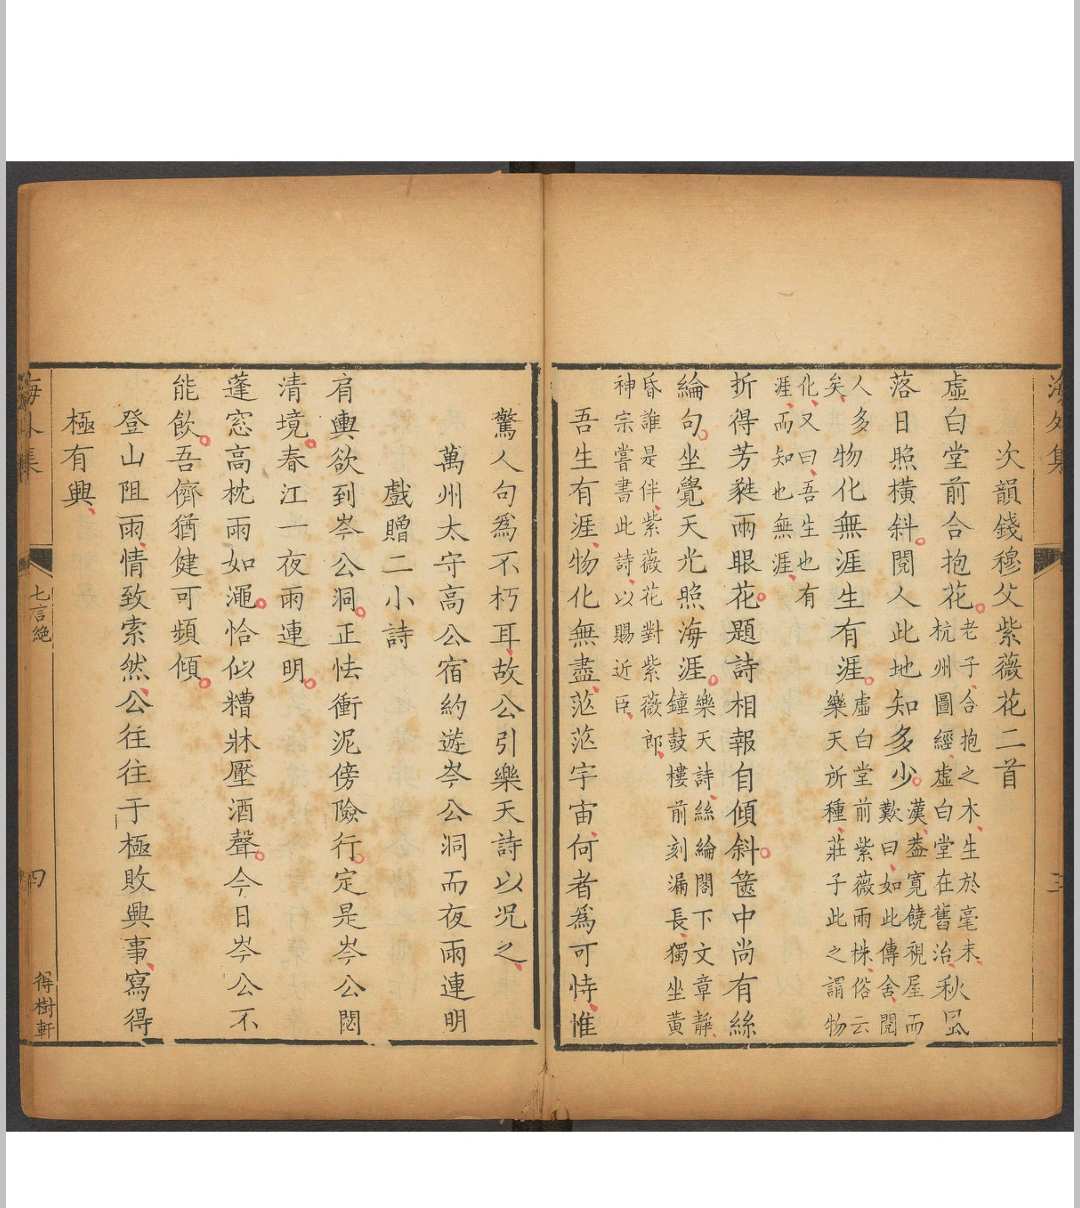 海外集
次韻錢穆父紫薇花二首
虛白堂前合抱花老子合抱之木生於毫末
杭州圖經虛白堂在舊治秋風
落日照橫斜閱人此地知多少漢蓋寬饒視屋而
歎曰如此傳舍閱
人多
矣物化無涯生有涯虛白堂前紫薇兩株俗云
樂天所種莊子此之謂物
化又曰吾生也有
涯而知也無涯
折得芳蕤兩眼花題詩相報自傾斜篋中尚有絲
綸句坐覺天光照海涯樂天詩絲綸閣下文章靜
鐘鼓樓前刻漏長獨坐黃
昏誰是伴紫薇花對紫薇郎
神宗嘗書此詩以賜近臣
吾生有涯物化無盡茫茫宇宙何者為可恃惟
驚人句為不朽耳故公引樂天詩以況之
萬州太守高公宿約遊岑公洞而夜雨連明
戲贈二小詩
肩輿欲到岑公洞正怯衝泥傍險行定是岑公閟
清境春江一夜雨連明
蓬窓高枕雨如澠恰似糟牀壓酒聲今日岑公不
能飲吾儕猶健可頻傾
登山阻雨情致索然公往往于極敗興事寫得
極有興
海外集
七言絕
四
得樹軒